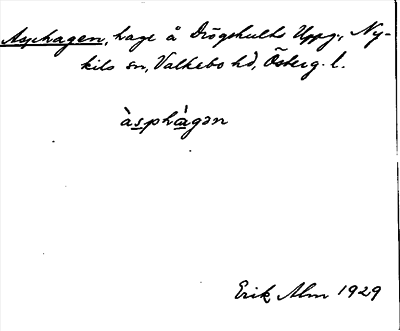 Asphagen, hage å Drögshults Uppg., Ny-
kils sn, Valkebo hd, Österg. l.
àsphàgən
Erik Alm 1929